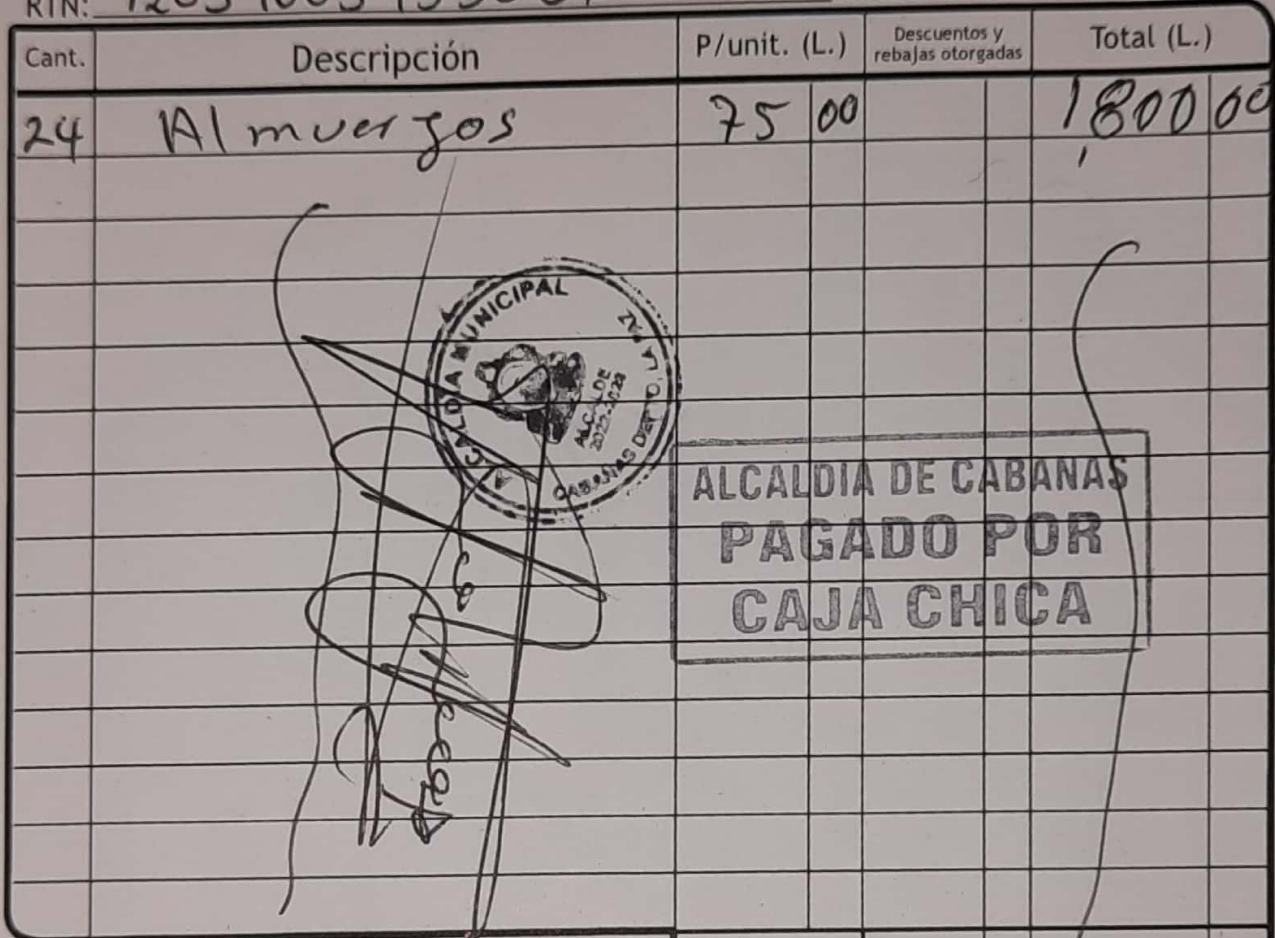 RIN:
Cant. Descripción P/unit. (L.) Descuentos y rebajas otorgadas Total (L.)
24 Almuerzos 75 00 1,800 00
ALCALDIA MUNICIPAL
ALCALDE
2022-2026
CABAÑAS DEPTO. LA PAZ
ALCALDIA DE CABANAS
PAGADO POR
CAJA CHICA